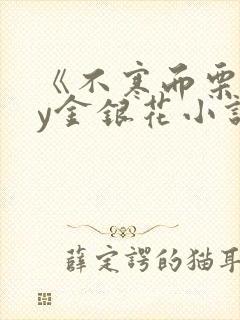 《不寒而栗
y金银花小说
薛定谔的猫耳